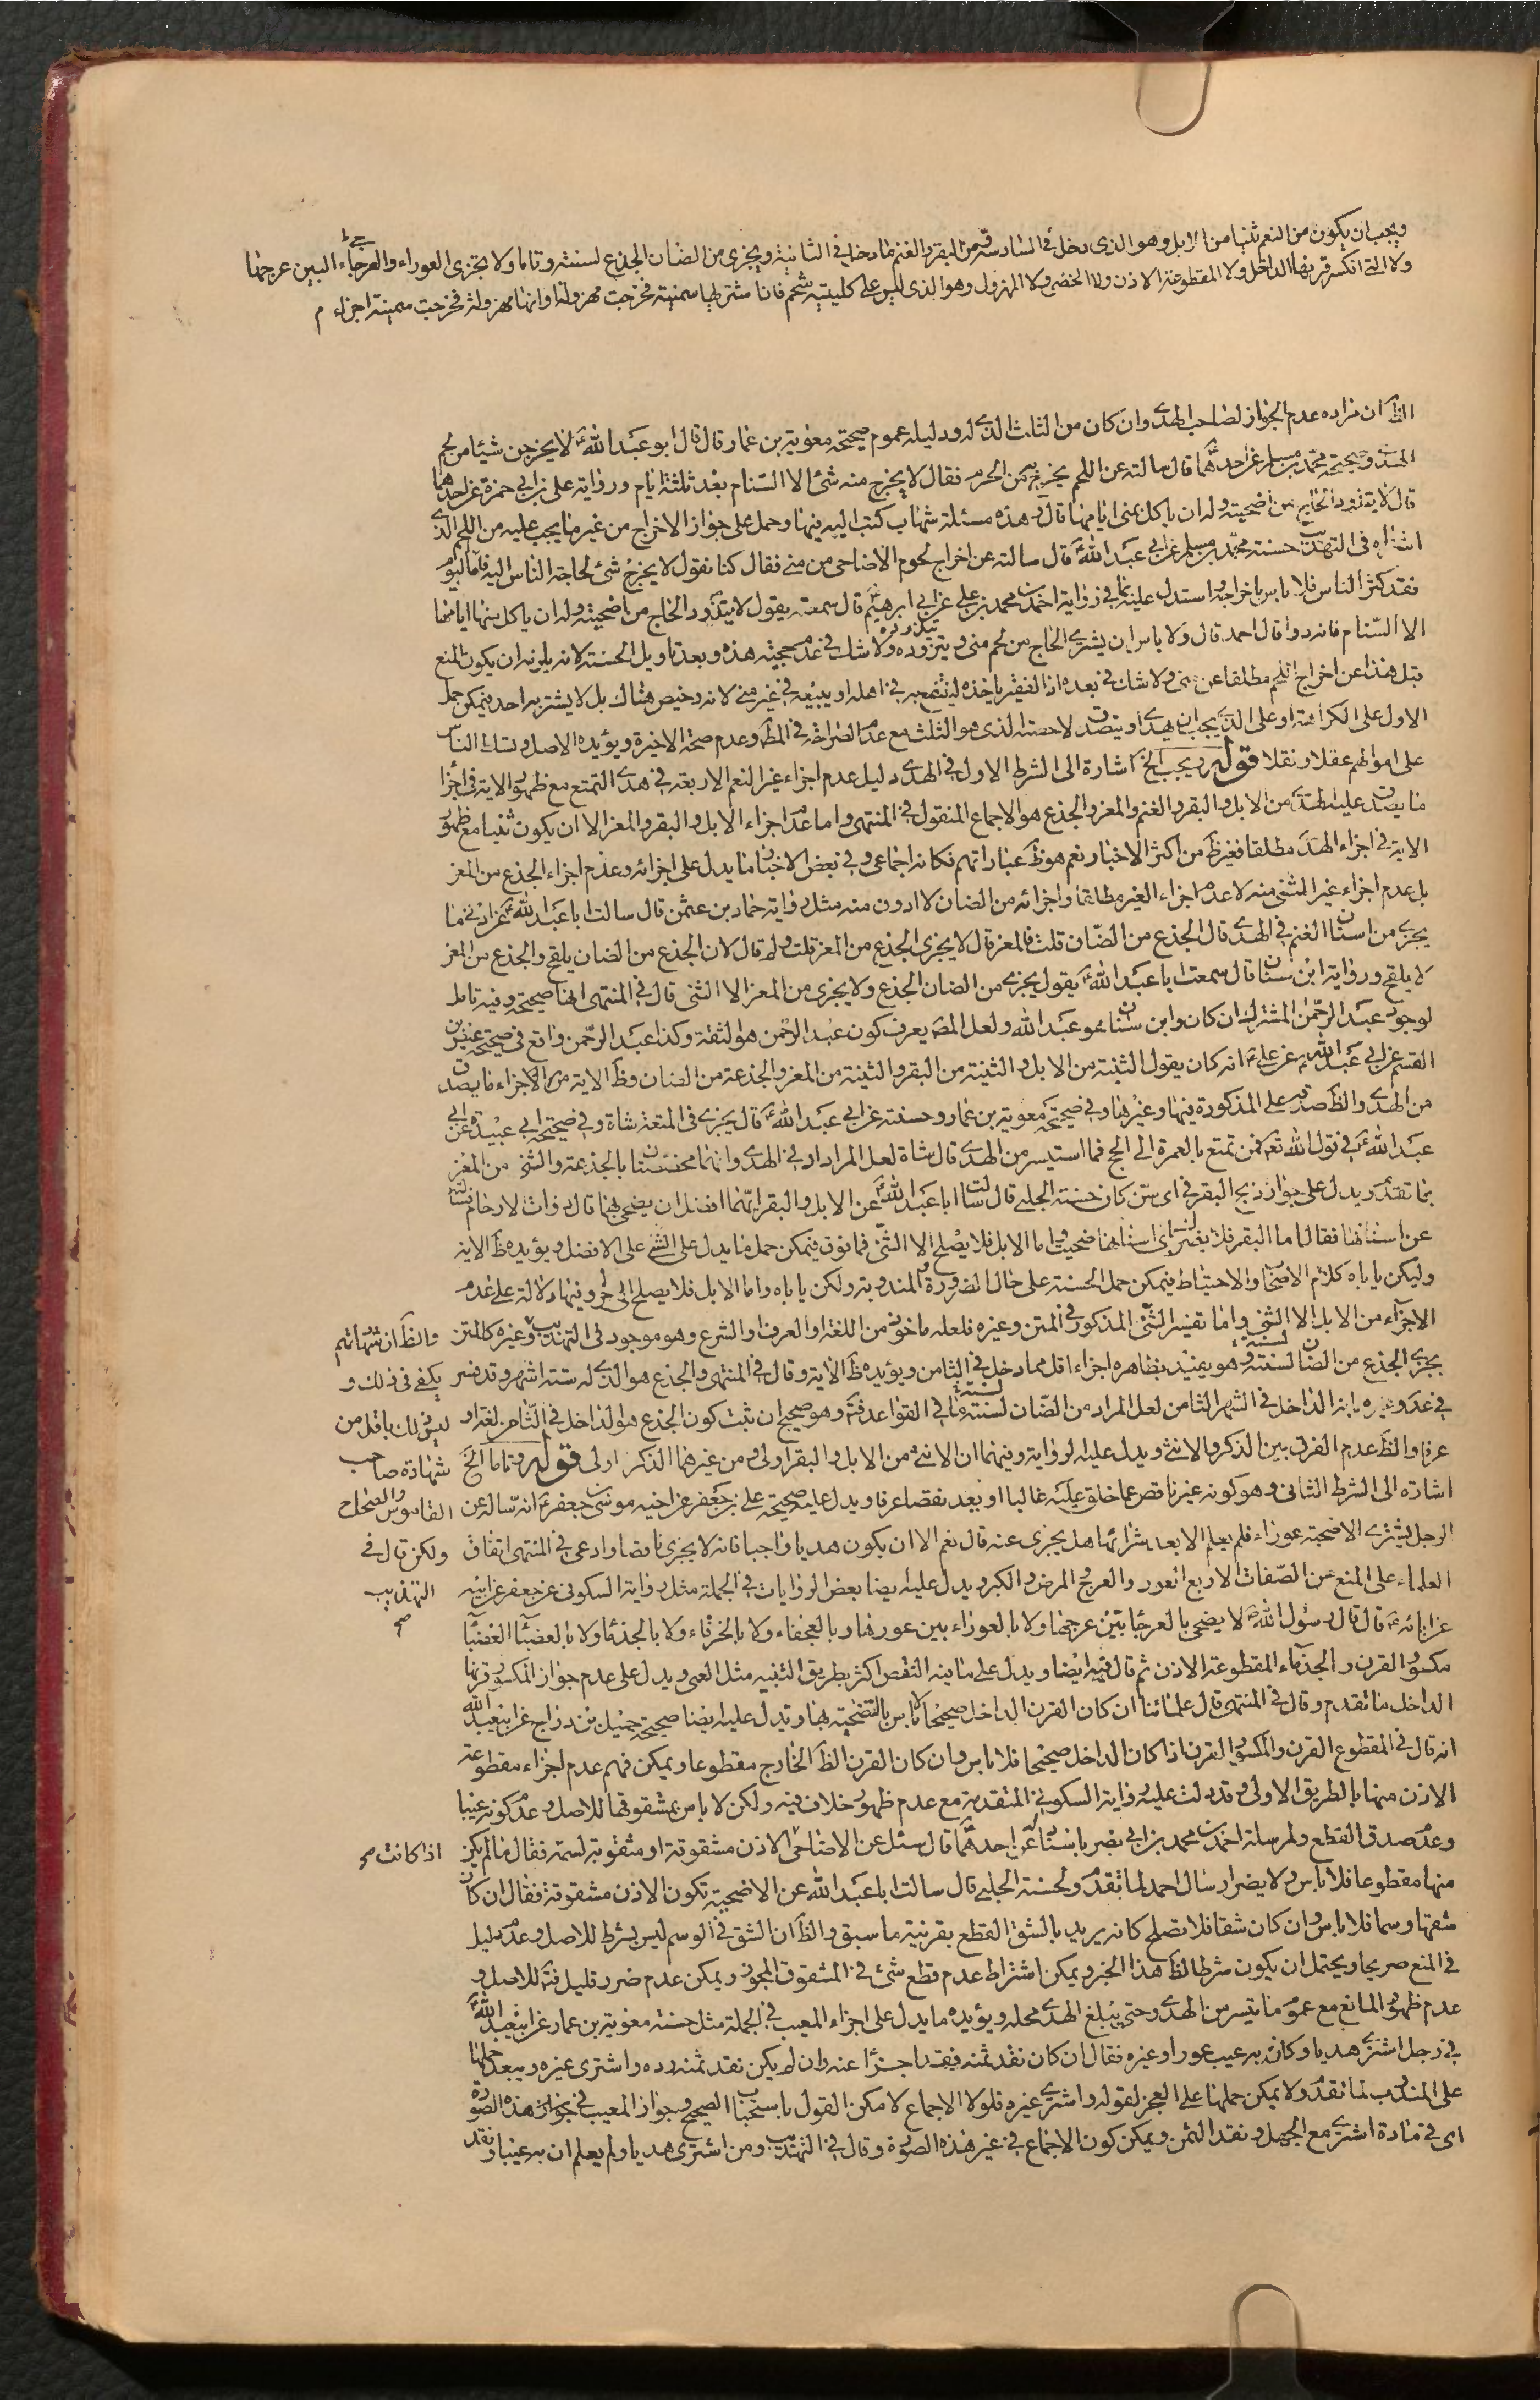 ويجب ان يكون من النعم ثنيا من الابل وهو الذى دخل في السادسة ومن البقر والغنم ما دخل في الثانية ويجزى من الضان الجذع لسنته وتاما ولا يجزى العوراء والعرجاء البين عرجها
ولا التى انكسر قرنها الداخل ولا المقطوعة الاذن ولا الخصى ولا المهزول وهو الذى ليس على كليتيه شحم فان اشتراها سمينة فخرجت مهزولة او انها مهزولة فخرجت سمينة اجزاء م
الظ ان مراده عدم الجواز لصاحب الهدى وان كان من الثلث الذى له ودليله عموم صحيحة معوية بن عمار قال قال ابو عبد الله ع لا يخرجن شيئا من لحم
الهدى وصحيحة محمد بن مسلم عن احدهما قال سالته عن اللحم يخرج به من الحرم فقال لا يخرج منه شئ الا السنام بعد ثلثة ايام ورواية على بن ابي حمزة عن احدهما
قال لا يتزود الحاج من اضحيته وله ان ياكل بمنى ايامها قال وهذه مسئلة شهاب كتب اليه فيها وحمل على جواز الاخراج من غير ما يجب عليه من اللحم الذى
اشتراه فى التهذيب حسنة محمد بن مسلم عن ابي عبد الله ع قال سالته عن اخراج لحوم الاضاحى من منى فقال كنا نقول لا يخرج شئ لحاجة الناس اليه فاما اليوم
فقد كثر الناس فلا باس باخراجه واستدل عليه بما في رواية احمد بن محمد عن على عن ابي ابرهيم ع قال سمعته يقول لا يتزود الحاج من اضحيته وله ان ياكل منها ايامها
الا السنام فانه دواء قال احمد قال ولا باس ان يشترى الحاج من لحم منى ويتزوده ولا شك في عدم صحية هذه وبعد تاويل الحسنة لانه يلزم ان يكون المنع
قبل هذا عن اخراج اللحم مطلقا عن منى ولا شك في بعده اذ الفقير ياخذه لينتفع به في اهله او يبيعه في غير منى لانه رخيص هناك بل لا يشتريه احد فيمكن حمل
الاول على الكراهة او على الذى يجب ان يهدى او يتصدق لا حصته الذى هو الثلث مع عدم الصراحة في المط وعدم صحة الاخيرة ويؤيده الاصل وتسلط الناس
على اموالهم عقلا ونقلا قوله ويجب الخ اشارة الى الشرط الاول في الهدى دليل عدم اجزاء غير النعم الاربعة في هدى التمتع مع ظهور الاية فى اجزاء
ما يصدق عليه الهدى من الابل والبقر والغنم والمعز والجذع هو الاجماع المنقول في المنتهى واما عدم اجزاء الابل والبقر والمعز الا ان يكون ثنيا مع ظهور
الاية في اجزاء الهدى مطلقا فغير ظ من اكثر الاخبار نعم هو ظ عباراتهم فكانه اجماعى وفي بعض الاخبار ما يدل على اجزائه وعدم اجزاء الجذع من المعز
بل عدم اجزاء غير المثنى منه لا عدم اجزاء الغير مطلقا واجزائه من الضان لا ادون منه مثل رواية حماد بن عثمن قال سالت ابا عبد الله ع عن ادنى ما
يجزى من اسنان الغنم في الهدى قال الجذع من الضان قلت فالمعز قال لا يجزى الجذع من المعز قلت ولم قال لان الجذع من الضان يلقح والجذع من المعز
لا يلقح ورواية ابن سنان قال سمعت ابا عبد الله ع يقول يجزى من الضان الجذع ولا يجزى من المعز الا الثنى قال في المنتهى انها صحيحة وفيه تامل
لوجود عبد الرحمن المشترك ان كان وابن سنان هو عبد الله ولعل المص يعرف كون عبد الرحمن هو الثقة وكذا عبد الرحمن واقع فى صحيحة عيص بن
القسم عن ابي عبد الله ع عن على ع انه كان يقول الثنية من الابل والثنية من البقر والثنية من المعز والجذعة من الضان وظ الاية من الاجزاء ما يصدق
من الهدى والظ صدقه على المذكورة فيها وغيرها وفي صحيحة معوية بن عمار وحسنته عن ابي عبد الله ع قال يجزى فى المتعة شاة وفي صحيحة ابي عبيدة عن ابي
عبد الله ع في قول الله تع فمن تمتع بالعمرة الى الحج فما استيسر من الهدى قال شاة لعل المراد ادنى الهدى وانهما مخصصتان بالجذعة والثنى من المعز
بما تقدم ويدل على جواز ذبح البقر في اى سن كان حسنة الحلبى قال سالت ابا عبد الله ع عن الابل والبقر ايهما افضل ان يضحى بها قال ذوات الارحام فسالته
عن اسنانها فقال اما البقر فلا يضرك باى اسنانها ضحيت واما الابل فلا يصلح الا الثنى فما فوق فيمكن حمل ما يدل على الثنى على الافضل ويؤيده ظ الاية
ولكن ياباه كلام الاصحاب والاحتياط فيمكن حمل الحسنة على حال الضرورة والمندوبة ولكن ياباه واما الابل فلا يصلح الى اخره وفيها دلالة على عدم
الاجزاء من الابل الا الثنى واما تفسير الثنى المذكور فى المتن وغيره فلعله ماخوذ من اللغة او العرف او الشرع وهو موجود فى التهذيب وغيره كالمتن والظ ان شهاتهم
يجزى الجذع من الضان لسنته وهو يفيد بظاهره اجزاء اقل مما دخل في الثامن ويؤيده ظ الاية وقال في المنتهى والجذع هو الذى له ستة اشهر وقد فسر يكفى فى ذلك و
في عد وغيره بانه الداخل في الشهر الثامن لعل المراد من الضان لسنته ما في القواعد فت وهو صحيح ان ثبت كون الجذع هو الداخل في الثامن لغة او ليس ذلك باقل من
عرفا والظ عدم الفرق بين الذكر والانثى ويدل عليه الرواية وفيهما ان الانثى من الابل والبقر اولى ومن غيرهما الذكر اولى قوله وتاما الخ شهادة صاحب
اشارة الى الشرط الثانى وهو كونه غير ناقص عما خلق عليه غالبا او بعد نقصا عرفا ويدل عليه صحيحة على بن جعفر عن اخيه موسى بن جعفر ع انه ساله عن القاموس والصحاح
الرجل يشترى الاضحية عوراء فلم يعلم الا بعد شرائها هل يجزى عنه قال نعم الا ان يكون هديا واجبا فانه لا يجزى ناقصا وادعى في المنتهى اتفاق ولكن قال في
العلماء على المنع من الصفات الاربع العور والعرج والمرض والكبر ويدل عليه ايضا بعض الروايات في الجملة مثل رواية السكونى عن جعفر عن ابيه التهذيب
صح
عن ابائه ع قال قال رسول الله ص لا يضحى بالعرجاء بين عرجها ولا بالعوراء بين عورها وبالعجفاء ولا بالخرقاء ولا بالجذعاء ولا بالعضباء العضباء
مكسور القرن والجذعاء المقطوعة الاذن ثم قال فيه ايضا ويدل على ما فيه النقص اكثر بطريق التنبيه مثل العمى ويدل على عدم جواز المكسور قرنها
الداخل ما تقدم وقال في المنتهى قال علمائنا ان كان القرن الداخل صحيحا لا باس بالتضحية بها ويدل عليه ايضا صحيحة جميل بن دراج عن ابي عبد الله
انه قال فى المقطوع القرن والمكسور القرن اذا كان الداخل صحيحا فلا باس وان كان القرن الظ الخارج مقطوعا ويمكن فهم عدم اجزاء مقطوعة
الاذن منها بالطريق الاولى وقد دلت عليه رواية السكونى المتقدمة مع عدم ظهور خلاف فيه ولكن لا باس بمشقوقها للاصل وعدم كونه عيبا
وعدم صدق القطع ولمرسلة احمد بن محمد بن ابي نصر باسناده عن احدهما قال سئل عن الاضاحى الاذن مشقوقة او مثقوبة لسمة فقال ما لم يكن اذا كانت صح
منها مقطوعا فلا باس ولا يضر ارسال احمد لما تقدم ولحسنة الحلبى قال سالت ابا عبد الله عن الاضحية تكون الاذن مشقوقة فقال ان كان
شقها وسما فلا باس وان كان شقا فلا تصلح كانه يريد بالشق القطع بقرينة ما سبق والظ ان الشق في الوسم ليس بشرط للاصل وعدم دليل
في المنع صريحا ويحتمل ان يكون شرطا لظ هذا الخبر ويمكن اشتراط عدم قطع شئ فى المشقوق المجوز ويمكن عدم ضرر قليل فت للاصل و
عدم ظهور المانع مع عموم ما يتسر من الهدى وحتى يبلغ الهدى محله ويؤيده ما يدل على اجزاء المعيب في الجملة مثل حسنة معوية بن عمار عن ابي عبد الله ع
في رجل اشترى هديا وكان به عيب عور او غيره فقال ان كان نقد ثمنه فقد اجزا عنه وان لم يكن نقد ثمنه رده واشترى غيره ويبعد حملها
على المندوب لما تقدم ولا يمكن حملها على العجز لقوله واشترى غيره فلولا الاجماع لامكن القول باستحباب الصحيح وجواز المعيب في نحو هذه الصورة
اى فى مادة اشترى مع الجهل ونقد الثمن ويمكن كون الاجماع في غير هذه الصورة وقال في التهذيب ومن اشترى هديا ولم يعلم ان به عيبا ونقد